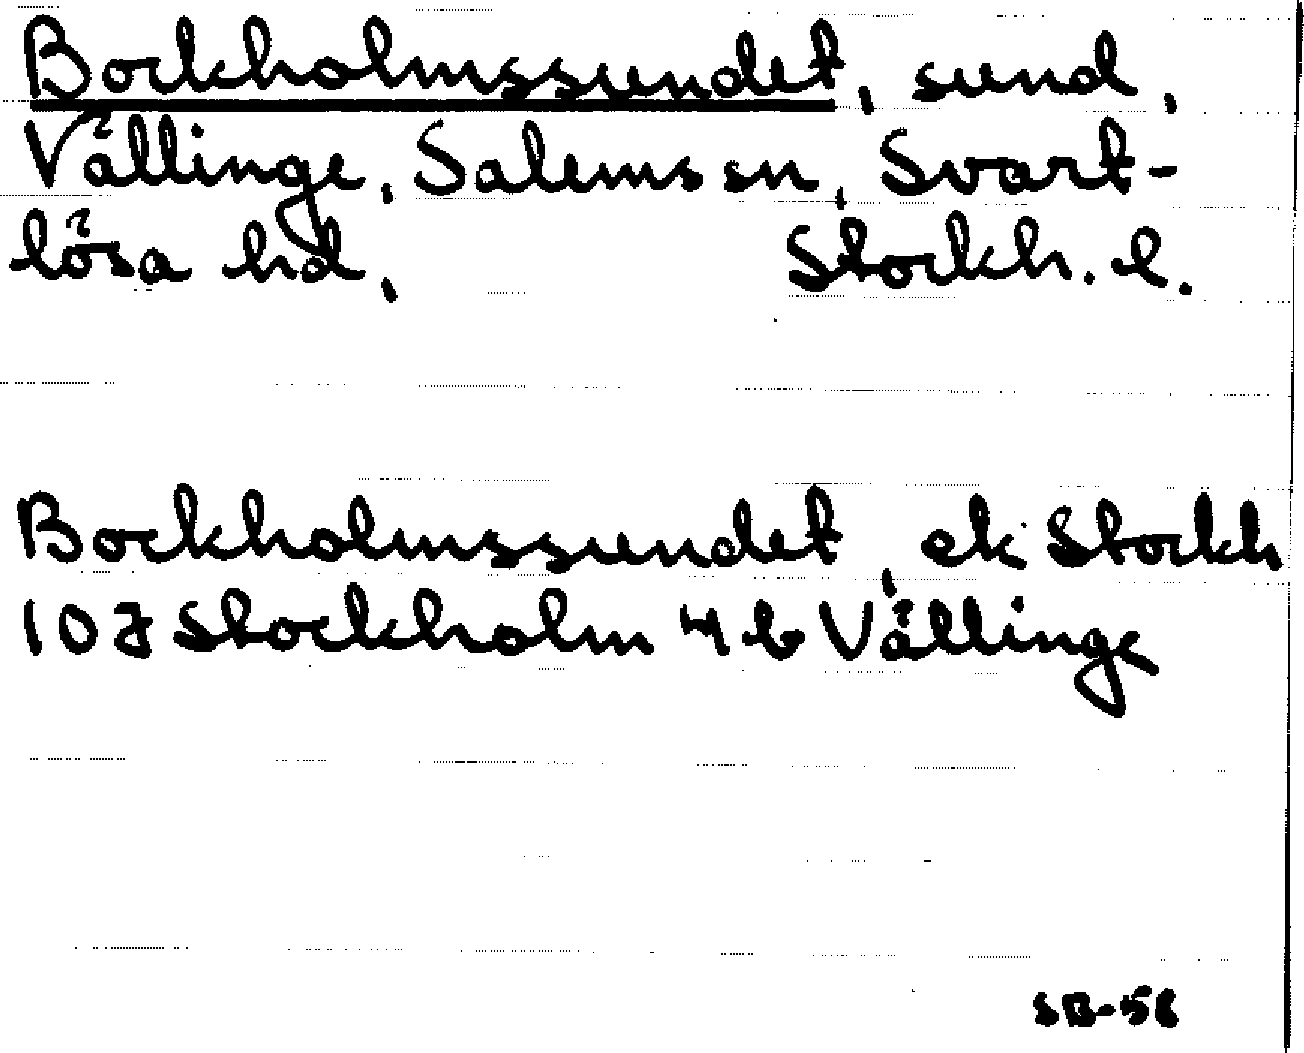 Bockholmssundet, sund,
Vällinge, Salems sn, Svart-
lösa hd, Stockh. l.
Bockholmssundet, ek Stockh
10J Stockholm 4b Vällinge
SB-58